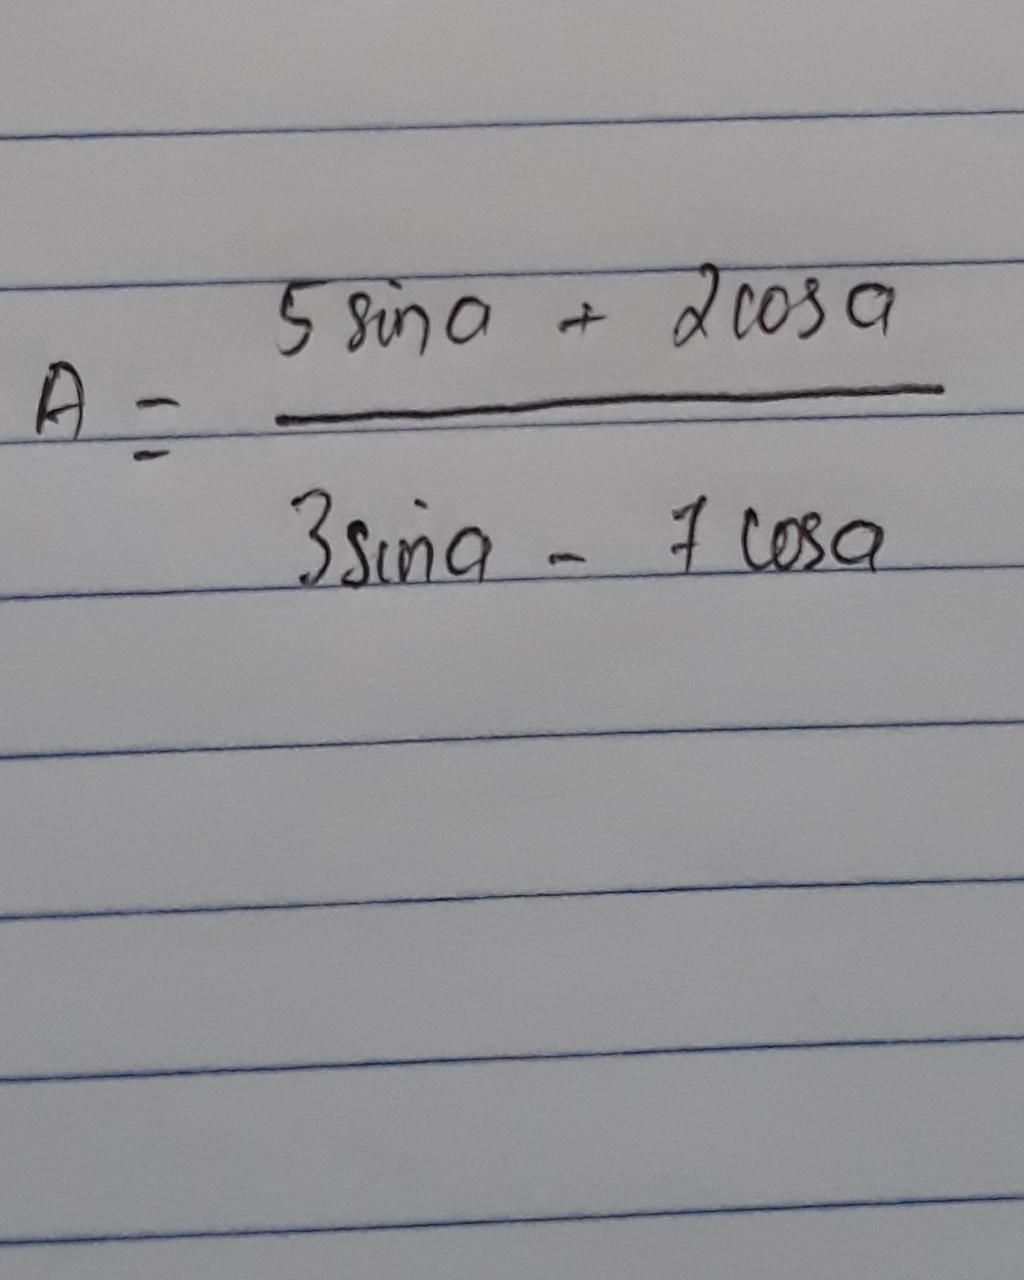 A = 5 sin a + 2 cos a
3 sin a - 7 cos a